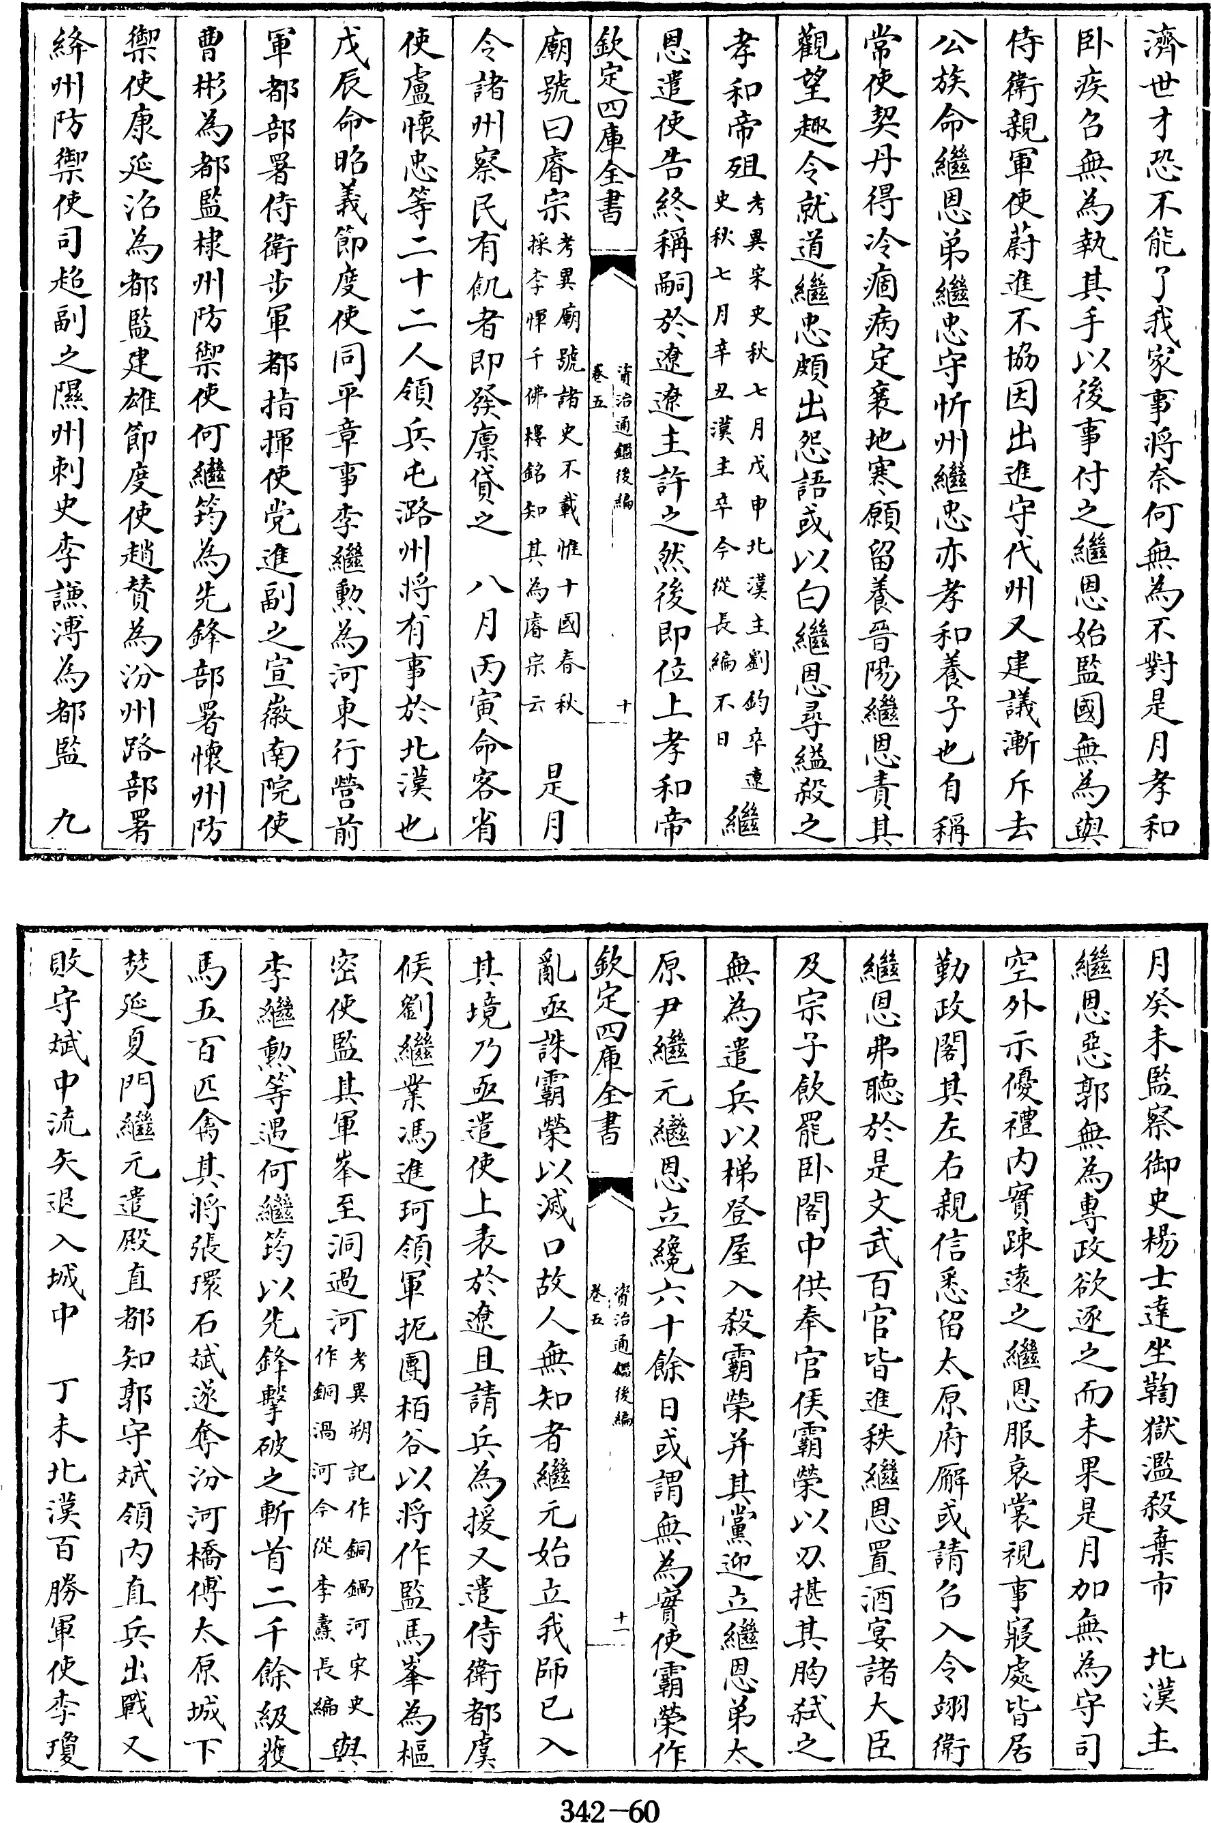 濟世才恐不能了我家事將奈何無為不對是月孝和
卧疾召無為執其手以後事付之繼恩始監國無為與
侍衛親軍使蔚進不協因出進守代州又建議漸斥去
公族命繼恩弟繼忠守忻州繼忠亦孝和養子也自稱
常使契丹得冷痼病定襄地寒願留養晉陽繼恩責其
觀望趣令就道繼忠頗出怨語或以白繼恩尋縊殺之
孝和帝殂考異宋史秋七月戊申北漢主劉鈞卒遼史秋七月辛丑漢主卒今從長編不日繼
恩遣使告終稱嗣於遼遼主許之然後即位上孝和帝
欽定四庫全書
資治通鑑後編
卷五
十
廟號曰睿宗考異廟號諸史不載惟十國春秋採李惲千佛樓銘知其為睿宗云 是月
令諸州察民有飢者即發廩貸之 八月丙寅命客省
使盧懷忠等二十二人領兵屯潞州將有事於北漢也
戊辰命昭義節度使同平章事李繼勲為河東行營前
軍都部署侍衛步軍都指揮使党進副之宣徽南院使
曹彬為都監棣州防禦使何繼筠為先鋒部署懷州防
禦使康延沼為都監建雄節度使趙贊為汾州路部署
絳州防禦使司超副之隰州刺史李謙溥為都監 九
月癸未監察御史楊士達坐鞫獄濫殺棄市 北漢主
繼恩惡郭無為專政欲逐之而未果是月加無為守司
空外示優禮內實踈遠之繼恩服衰裳視事寢處皆居
勤政閣其左右親信悉留太原府廨或請召入令翊衛
繼恩弗聽於是文武百官皆進秩繼恩置酒宴諸大臣
及宗子飲罷卧閣中供奉官侯霸榮以刃揕其胸弒之
無為遣兵以梯登屋入殺霸榮并其黨迎立繼恩弟太
原尹繼元繼恩立纔六十餘日或謂無為實使霸榮作
欽定四庫全書
資治通鑑後編
卷五
十一
亂亟誅霸榮以滅口故人無知者繼元始立我師已入
其境乃亟遣使上表於遼且請兵為援又遣侍衛都虞
候劉繼業馮進珂領軍扼團栢谷以將作監馬峯為樞
密使監其軍峯至洞過河考異朔記作銅鍋河宋史作銅渦河今從李燾長編與
李繼勲等遇何繼筠以先鋒擊破之斬首二千餘級獲
馬五百匹禽其將張環石斌遂奪汾河橋傅太原城下
焚延夏門繼元遣殿直都知郭守斌領內直兵出戰又
敗守斌中流矢退入城中 丁未北漢百勝軍使李瓊
342-60